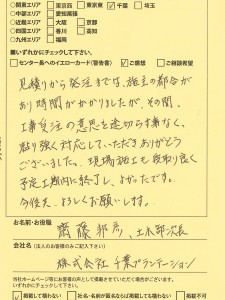 ◇関東エリア □東京西 □東京東 ☑千葉 □埼玉
◇中部エリア □愛知
◇近畿エリア □大阪 □京都
◇四国エリア □香川 □高知
◇九州エリア □福岡
■いずれかにチェックして下さい。
□センター長へのイエローカード(警告書) ☑ご感想 □ご相談希望
見積りから発注までは、施主の都合が
あり時間がかかりましたが、その間、
工事受注の意思を途切らす事なく、
粘り強く対応していただきありがとう
ございました。現場施工も段取り良く
予定工期内に終了し、よかったです。
今後共、よろしくお願いします。
お名前・お役職
齋藤 邦彦 土木部次長
会社名 (法人のお客様のみご記入下さい)
株式会社 千葉プランテーション
当社ホームページ等にお客様の声として
いずれかにチェックして下さい。
☑掲載して構わない □社名・名前が匿名ならば掲載しても構わない □掲載不可